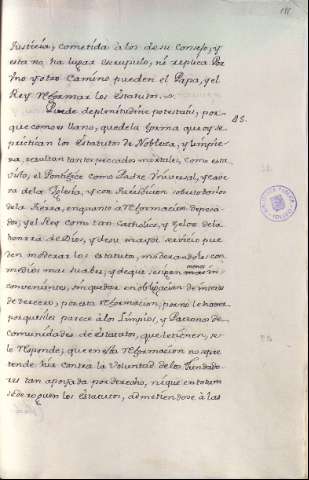 Justicia, cometida à los de su Consejo, y
esta no ha lugar escrupulo, ni replica. Por
vno y otro Camino pueden el Papa, y el
Rey reformar los estatutos.
Puede de plenitudine potestatis, por
que como es llano, que de la forma que oy se
practican los estatutos de Nobleza, y Limpie
za, resultan tantos pecados mortales, como esta
visto, el Pontifice como Padre Vniversal, y cave
za de la Iglesia, y con
de la tierra, en quanto a reformacion de peca
dos; y el Rey como tan Catholico, y zeloso de la
honrra de Dios, y de su mayor servicio pue
den moderar los estatutos, moderandolos con
medios mas suabes, y de que se sigan menos in
convenientes, sin quedar en obligacion de
de tercero, por esta reformacion, por no le haver
porque si les parece à los Limpios, y Patronos de
comunidades de estatutos, que le tienen, se
le responde; que en esta reformacion no se pre
tende hir contra la voluntad de los Fundado
res tan apoyada por derecho, ni que en todo
se deroguen los estatutos, admetiendose à las